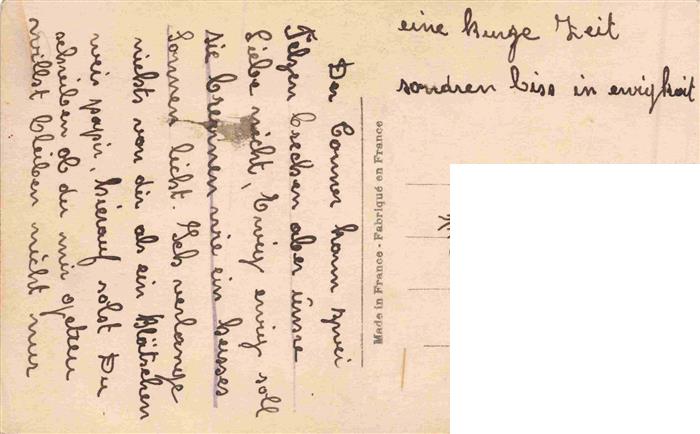 Der Donner kann zwei
Felzen brechen aber unsre
Liebe nicht, Ewig ewig soll
sie brennen wie ein heisses
Sonnen licht. Ich verlange
nichts von dir als ein Blätschen
weis papir, hierauf solst Du
schreiben ob du mir getreu
willst bleiben nicht nur
eine kurze Zeit
sondren biss in ewigkeit
Made in France - Fabriqué en France